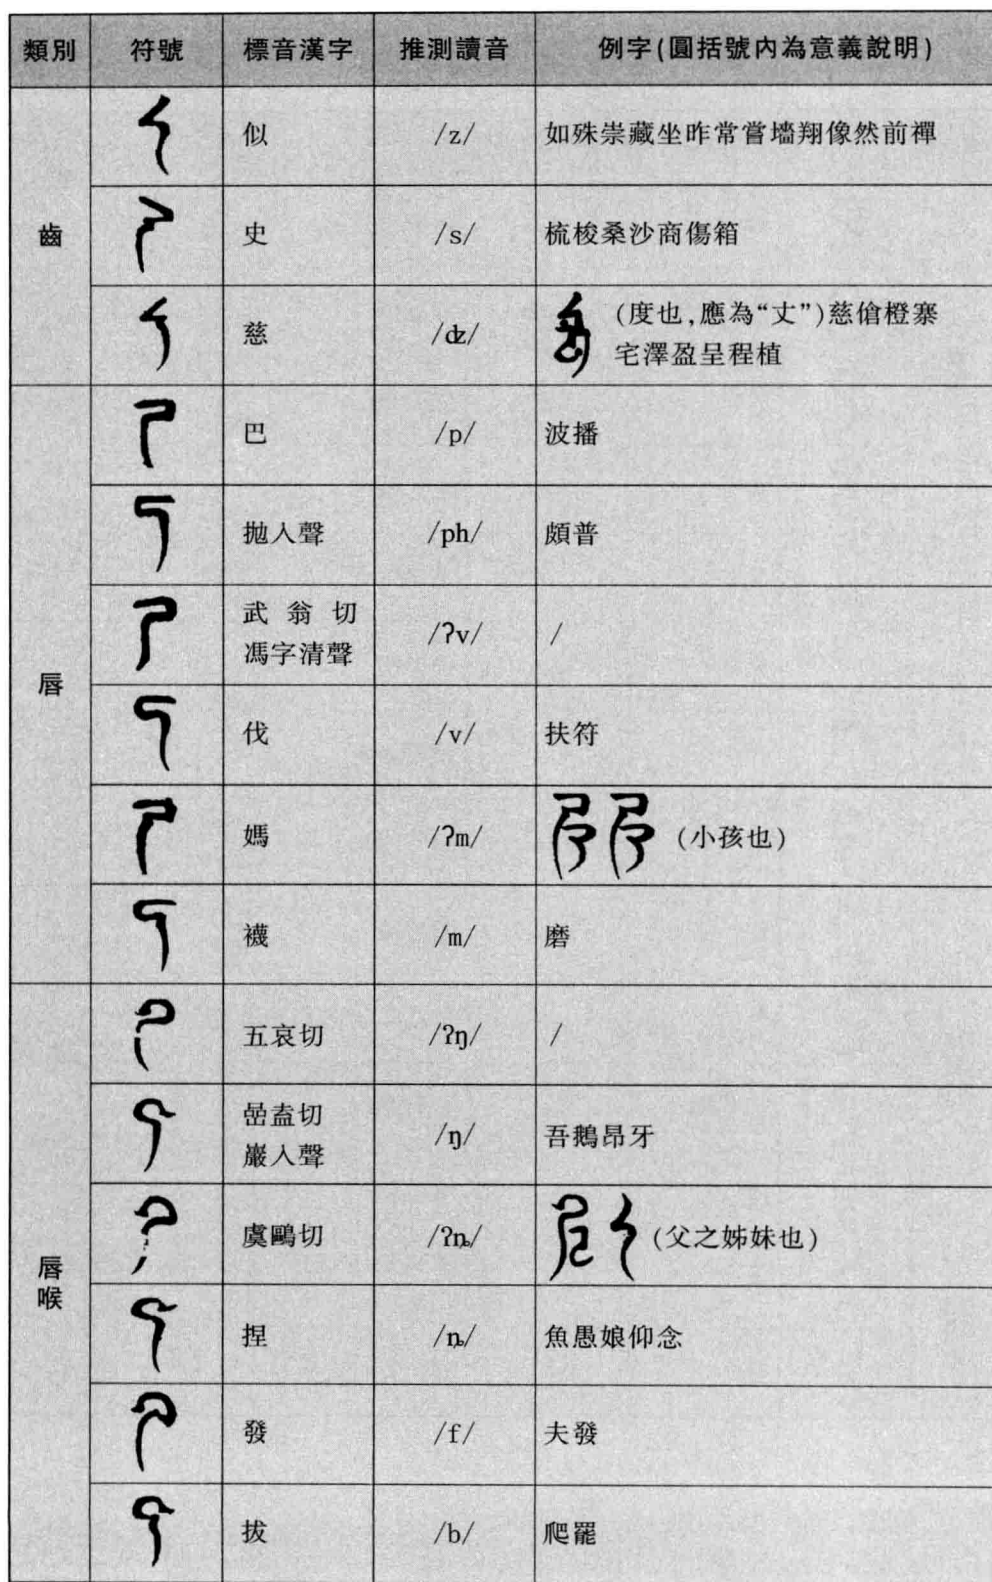 類別 符號 標音漢字 推測讀音 例字(圓括號內為意義說明)
齒
似 /z/ 如殊崇藏坐昨常嘗墻翔像然前禪
史 /s/ 梳梭桑沙商傷箱
慈 /ʥ/ (度也,應為“丈”)慈傖橙寨
宅澤盈呈程植
唇
巴 /p/ 波播
拋入聲 /ph/ 頗普
武翁切
馮字清聲 /ʔv/ /
伐 /v/ 扶符
媽 /ʔm/ (小孩也)
襪 /m/ 磨
唇喉
五哀切 /ʔŋ/ /
嵒盍切
巖入聲 /ŋ/ 吾鵝昂牙
虞鷗切 /ʔȵ/ (父之姊妹也)
捏 /ȵ/ 魚愚娘仰念
發 /f/ 夫發
拔 /b/ 爬罷